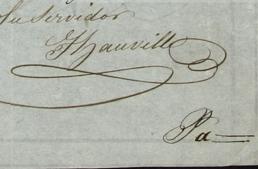 Su Servidor
Thauville
Pa